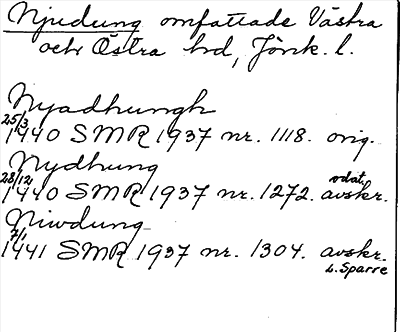 Njudung omfattade Västra
och Östra hd, Jönk. l.
Nyadhungh
25/3
1440 SMR 1937 nr. 1118. orig.
Nydhung
28/12 odat.
1440 SMR 1937 nr. 1272. avskr.
Niwdung
7/1
1441 SMR 1937 nr. 1304. avskr.
L. Sparre